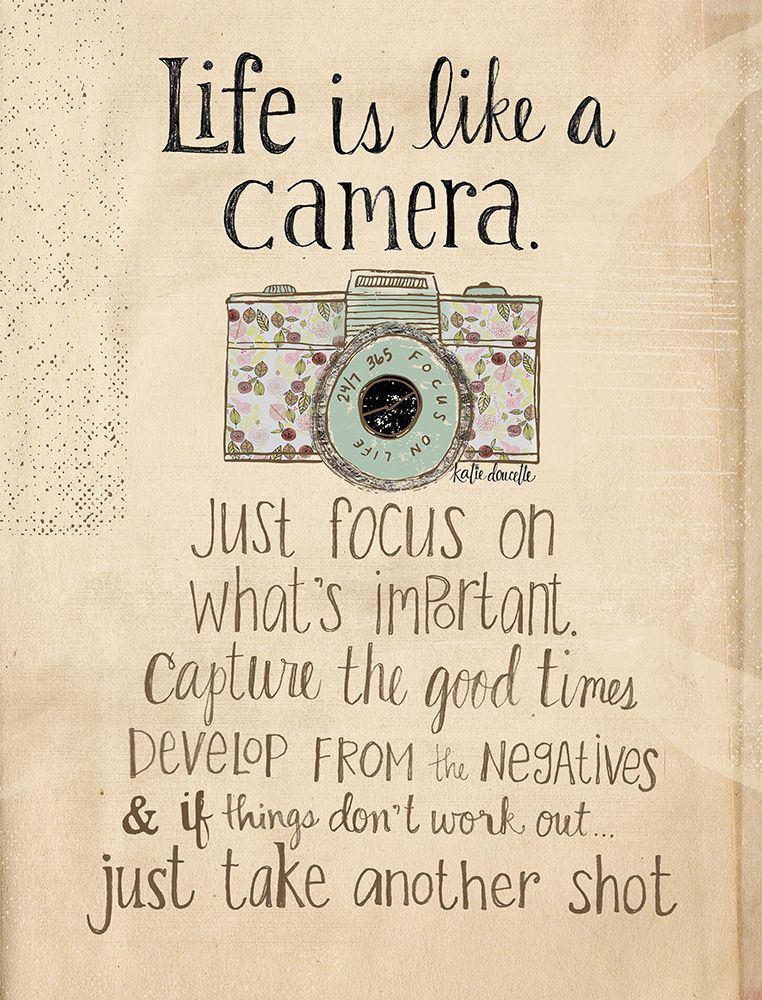 Life is like a
camera.
24/7 365 FOCUS ON LIFE
katie doucette
Just focus on
what's important.
Capture the good times
DEVELOP FROM the NEGATIVES
& if things don't work out...
just take another shot